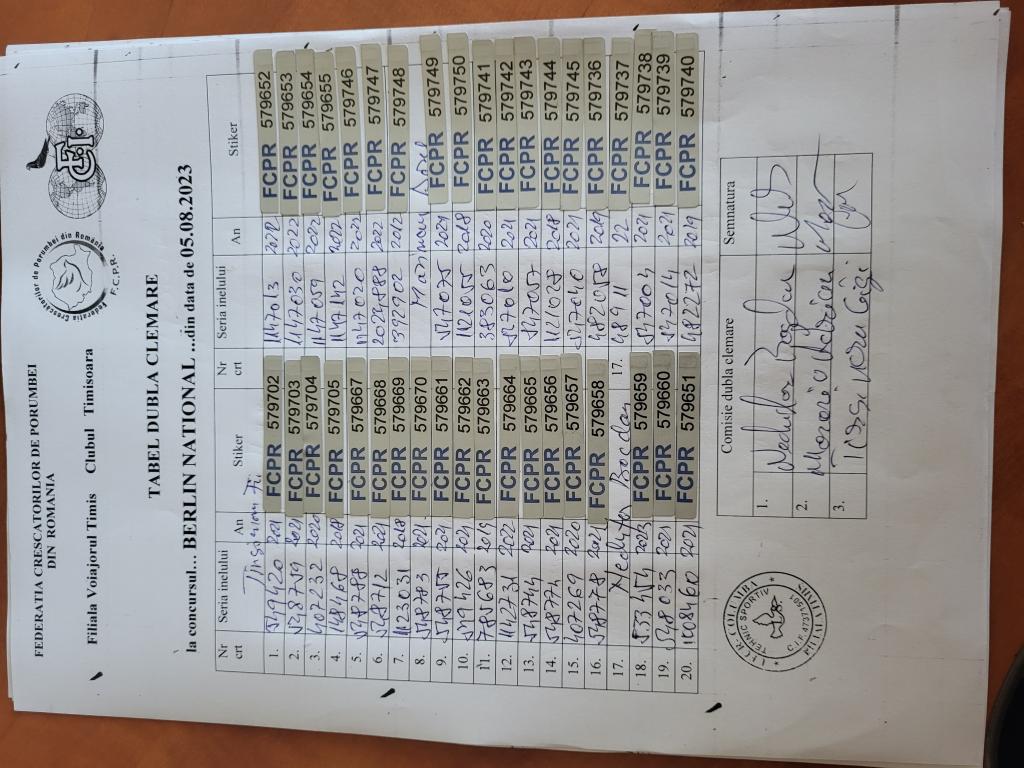 FEDERATIA CRESCATORILOR DE PORUMBEI
DIN ROMANIA
Federatia Crescatorilor de Porumbei din România
F.C.P.R.
FCI
Filiala Voiajorul Timis Clubul Timisoara
TABEL DUBLA CLEMARE
la concursul... BERLIN NATIONAL ...din data de 05.08.2023
Nr crt Seria inelului An Stiker Nr crt Seria inelului An Stiker
1. 549420 2021 FCPR 579702 1. 1147013 2022 FCPR 579652
2. 548759 2021 FCPR 579703 2. 1147030 2022 FCPR 579653
3. 407232 2020 FCPR 579704 3. 1147059 2022 FCPR 579654
4. 148468 2018 FCPR 579705 4. 1147142 2022 FCPR 579655
5. 548788 2021 FCPR 579667 5. 1147020 2022 FCPR 579746
6. 548712 2021 FCPR 579668 6. 2022 FCPR 579747
7. 1123031 2018 FCPR 579669 7. 392902 2012 FCPR 579748
8. 548783 2021 FCPR 579670 8.
9. 548755 2021 FCPR 579661 9. 547075 2021 FCPR 579749
10. 549426 2021 FCPR 579662 10. 1121055 2018 FCPR 579750
11. 785683 2019 FCPR 579663 11. 383063 2020 FCPR 579741
12. 1142731 2022 FCPR 579664 12. 547010 2021 FCPR 579742
13. 548744 2021 FCPR 579665 13. 547057 2021 FCPR 579743
14. 548774 2021 FCPR 579656 14. 1121028 2018 FCPR 579744
15. 407269 2020 FCPR 579657 15. 547040 2021 FCPR 579745
16. 548778 2021 FCPR 579658 16. 482058 2019 FCPR 579736
17. 17. 48911 22 FCPR 579737
18. 533454 2023 FCPR 579659 18. 547004 2021 FCPR 579738
19. 548033 2021 FCPR 579660 19. 547014 2021 FCPR 579739
20. 1008460 2021 FCPR 579651 20. 482272 2019 FCPR 579740
Comisie dubla clemare Semnatura
1.
2.
3.
COLUMBA
TEHNIC SPORTIV
FILIALA TIMIS